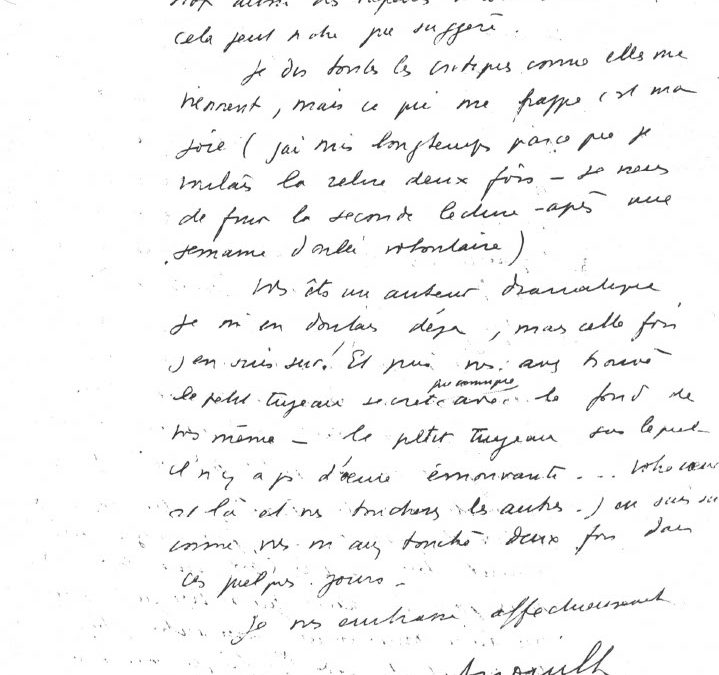 cela peut être que suggéré.
Je dis toutes les critiques comme elles me
viennent, mais ce qui me frappe c'est ma
joie (j'ai mis longtemps parce que je
voulais la relire deux fois – je viens
de finir la seconde lecture – après une
semaine d'oubli volontaire)
Vs êtes un auteur dramatique
Je m'en doutais déjà, mais cette fois
j'en suis sur! Et puis vs. avez trouvé
le petit tuyau secret qui communique avec le fond de
vs même – le petit tuyau sans lequel
il n'y a pas d'œuvre émouvante... Votre cœur
est là et vs toucherez les autres. J'en suis sur
comme vs m'avez touché deux fois dans
ces quelques jours –
Je vs embrasse affectueusement